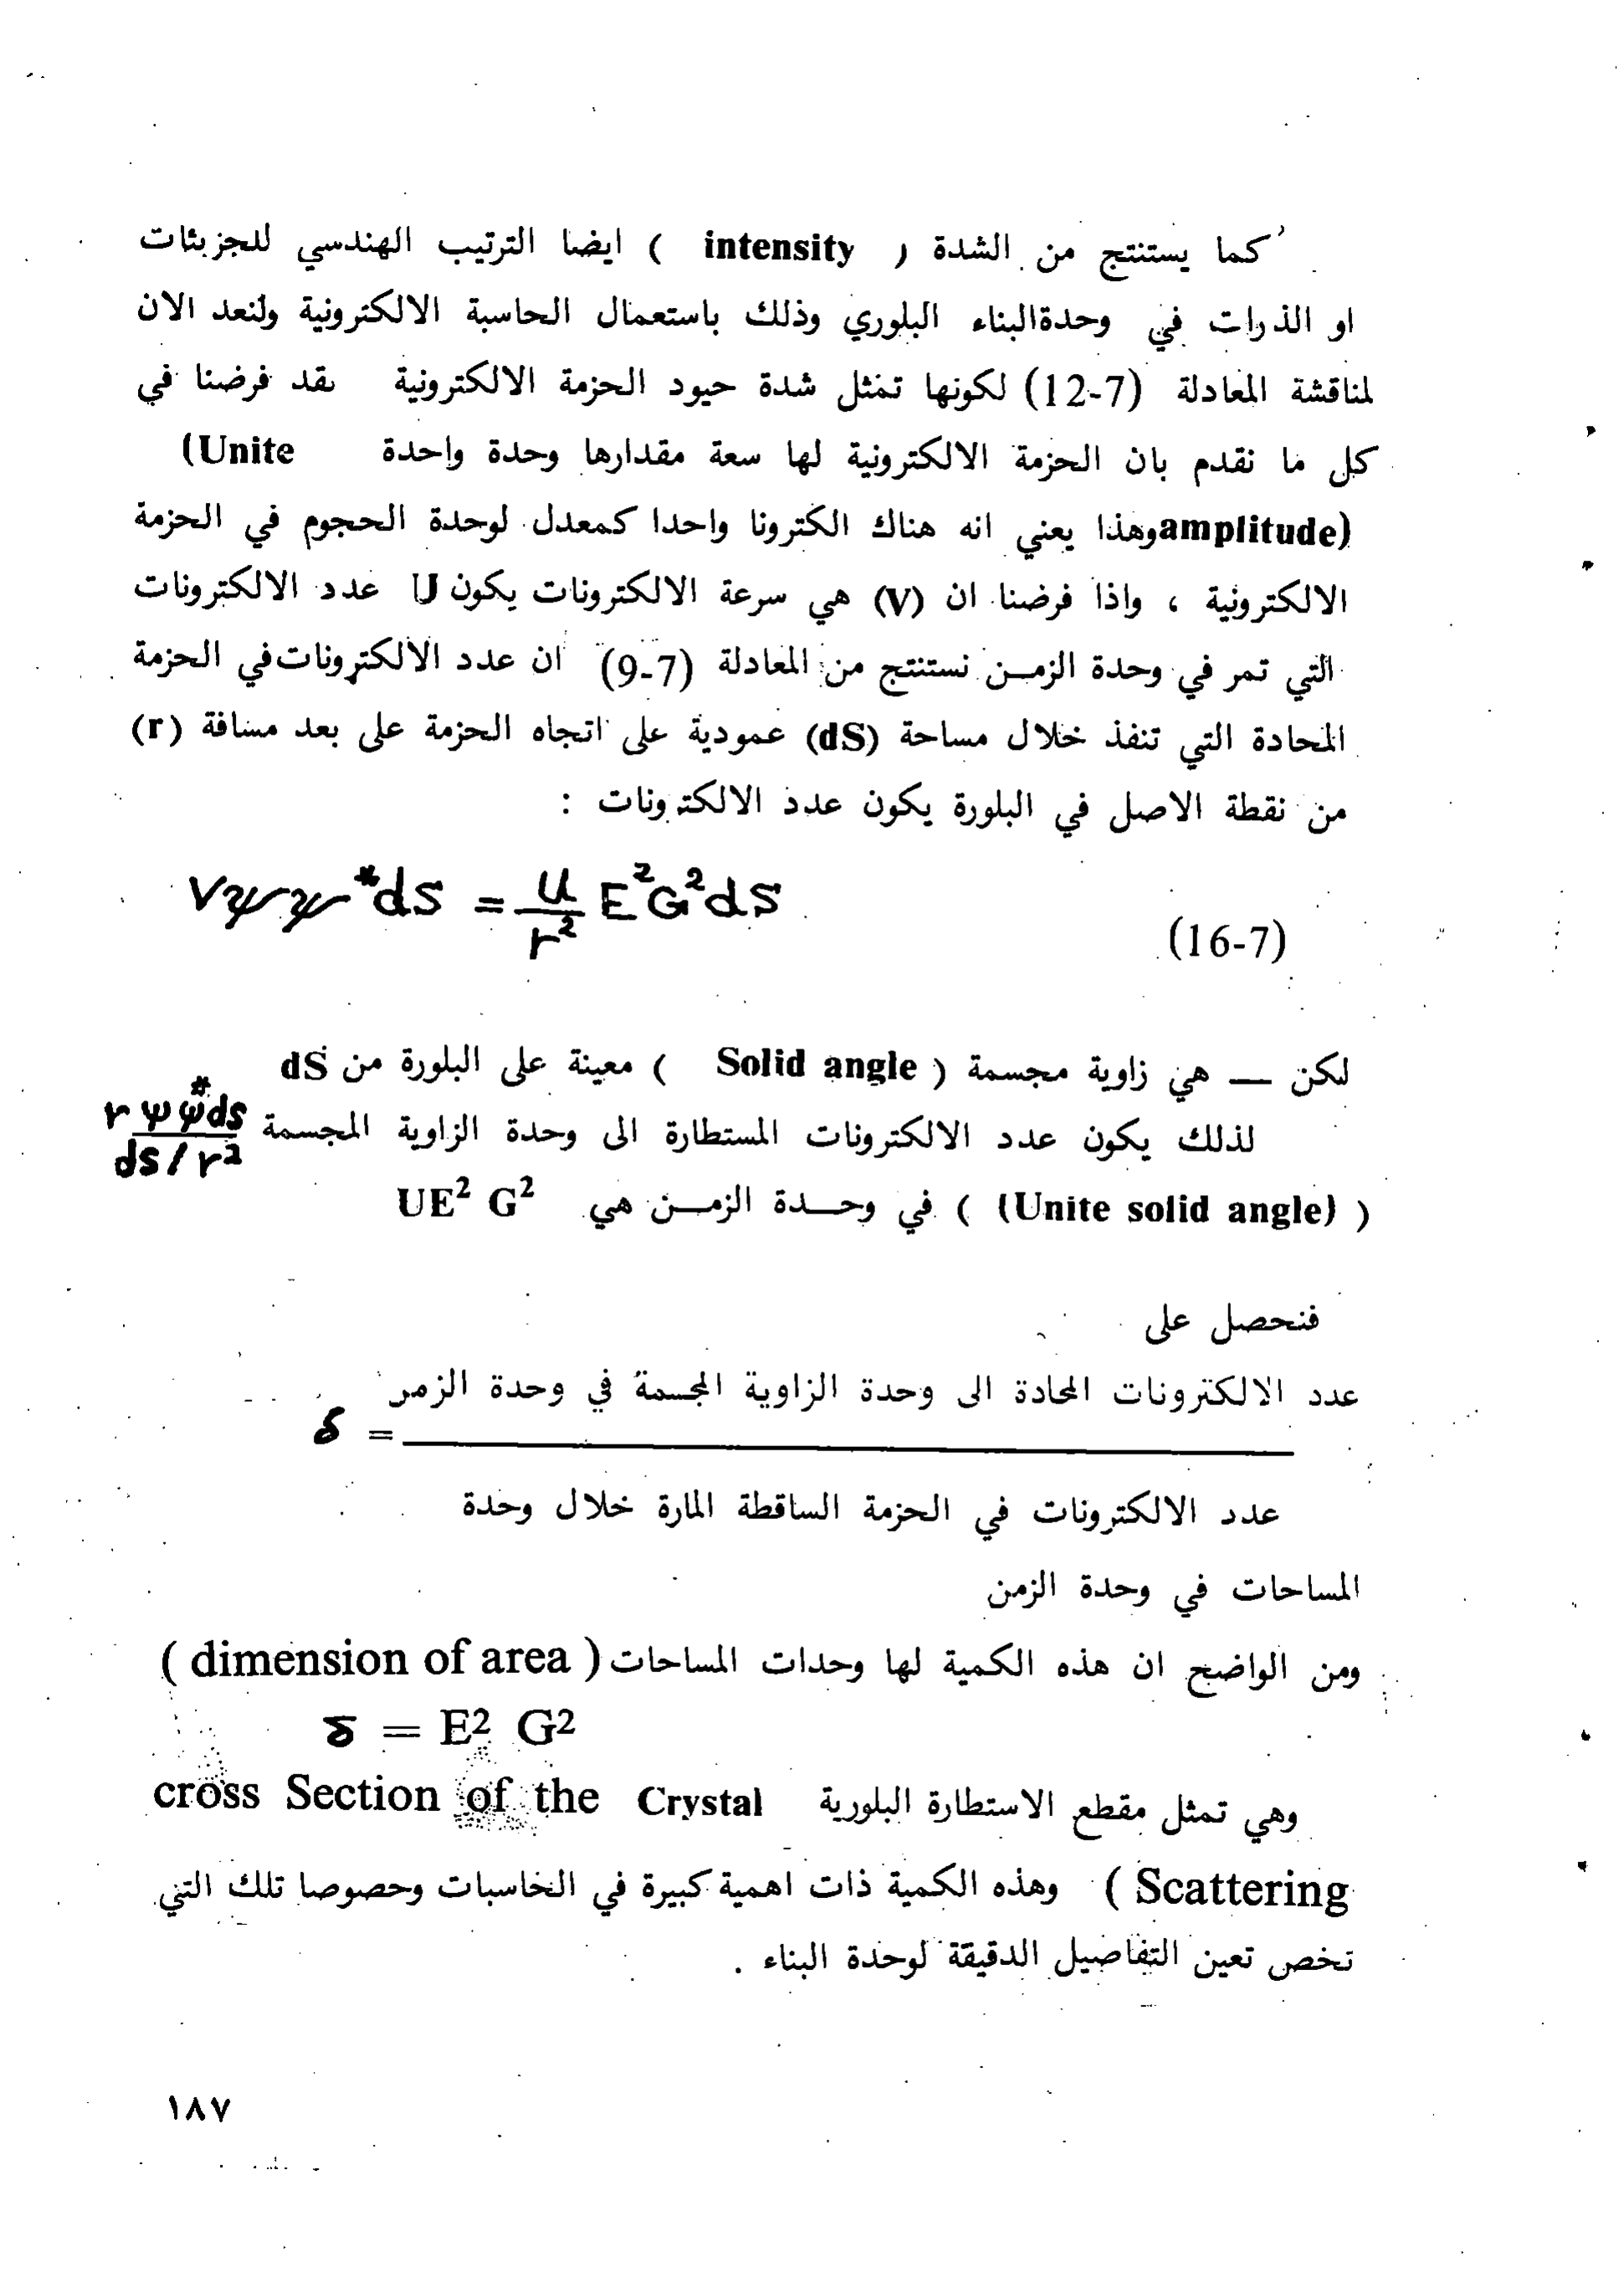 كما يستنتج من الشدة ( intensity ) ايضا الترتيب الهندسي للجزيئات
او الذرات في وحدةالبناء البلوري وذلك باستعمال الحاسبة الالكترونية ولنعد الان
لمناقشة المعادلة (12-7) لكونها تمثل شدة حيود الحزمة الالكترونية نقد فرضنا في
كل ما نقدم بان الحزمة الالكترونية لها سعة مقدارها وحدة واحدة (Unite
amplitude) وهذا يعني انه هناك الكترونا واحدا كمعدل لوحدة الحجوم في الحزمة
الالكترونية ، واذا فرضنا ان (V) هي سرعة الالكترونات يكون U عدد الالكترونات
التي تمر في وحدة الزمـن نستنتج من المعادلة (9-7) ان عدد الالكترونات في الحزمة
المحادة التي تنفذ خلال مساحة (dS) عمودية على اتجاه الحزمة على بعد مسافة (r)
من نقطة الاصل في البلورة يكون عدد الالكترونات :
Vψψ*dS = u/r² E²G²dS
(16-7)
لكن — هي زاوية مجسمة ( Solid angle ) معينة على البلورة من dS
لذلك يكون عدد الالكترونات المستطارة الى وحدة الزاوية المجسمة r ψ ψ* ds / ds / r²
( (Unite solid angle) ) في وحـــدة الزمـــن هي UE² G²
فنحصل على
عدد الالكترونات المحادة الى وحدة الزاوية المجسمة في وحدة الزمر
δ =
عدد الالكترونات في الحزمة الساقطة المارة خلال وحدة
المساحات في وحدة الزمن
ومن الواضح ان هذه الكمية لها وحدات المساحات ( dimension of area )
δ = E² G²
وهي تمثل مقطع الاستطارة البلورية cross Section of the Crystal
Scattering ) وهذه الكمية ذات اهمية كبيرة في الخاسبات وحصوصا تلك التي
تخص تعين التفاصيل الدقيقة لوحدة البناء .
١٨٧